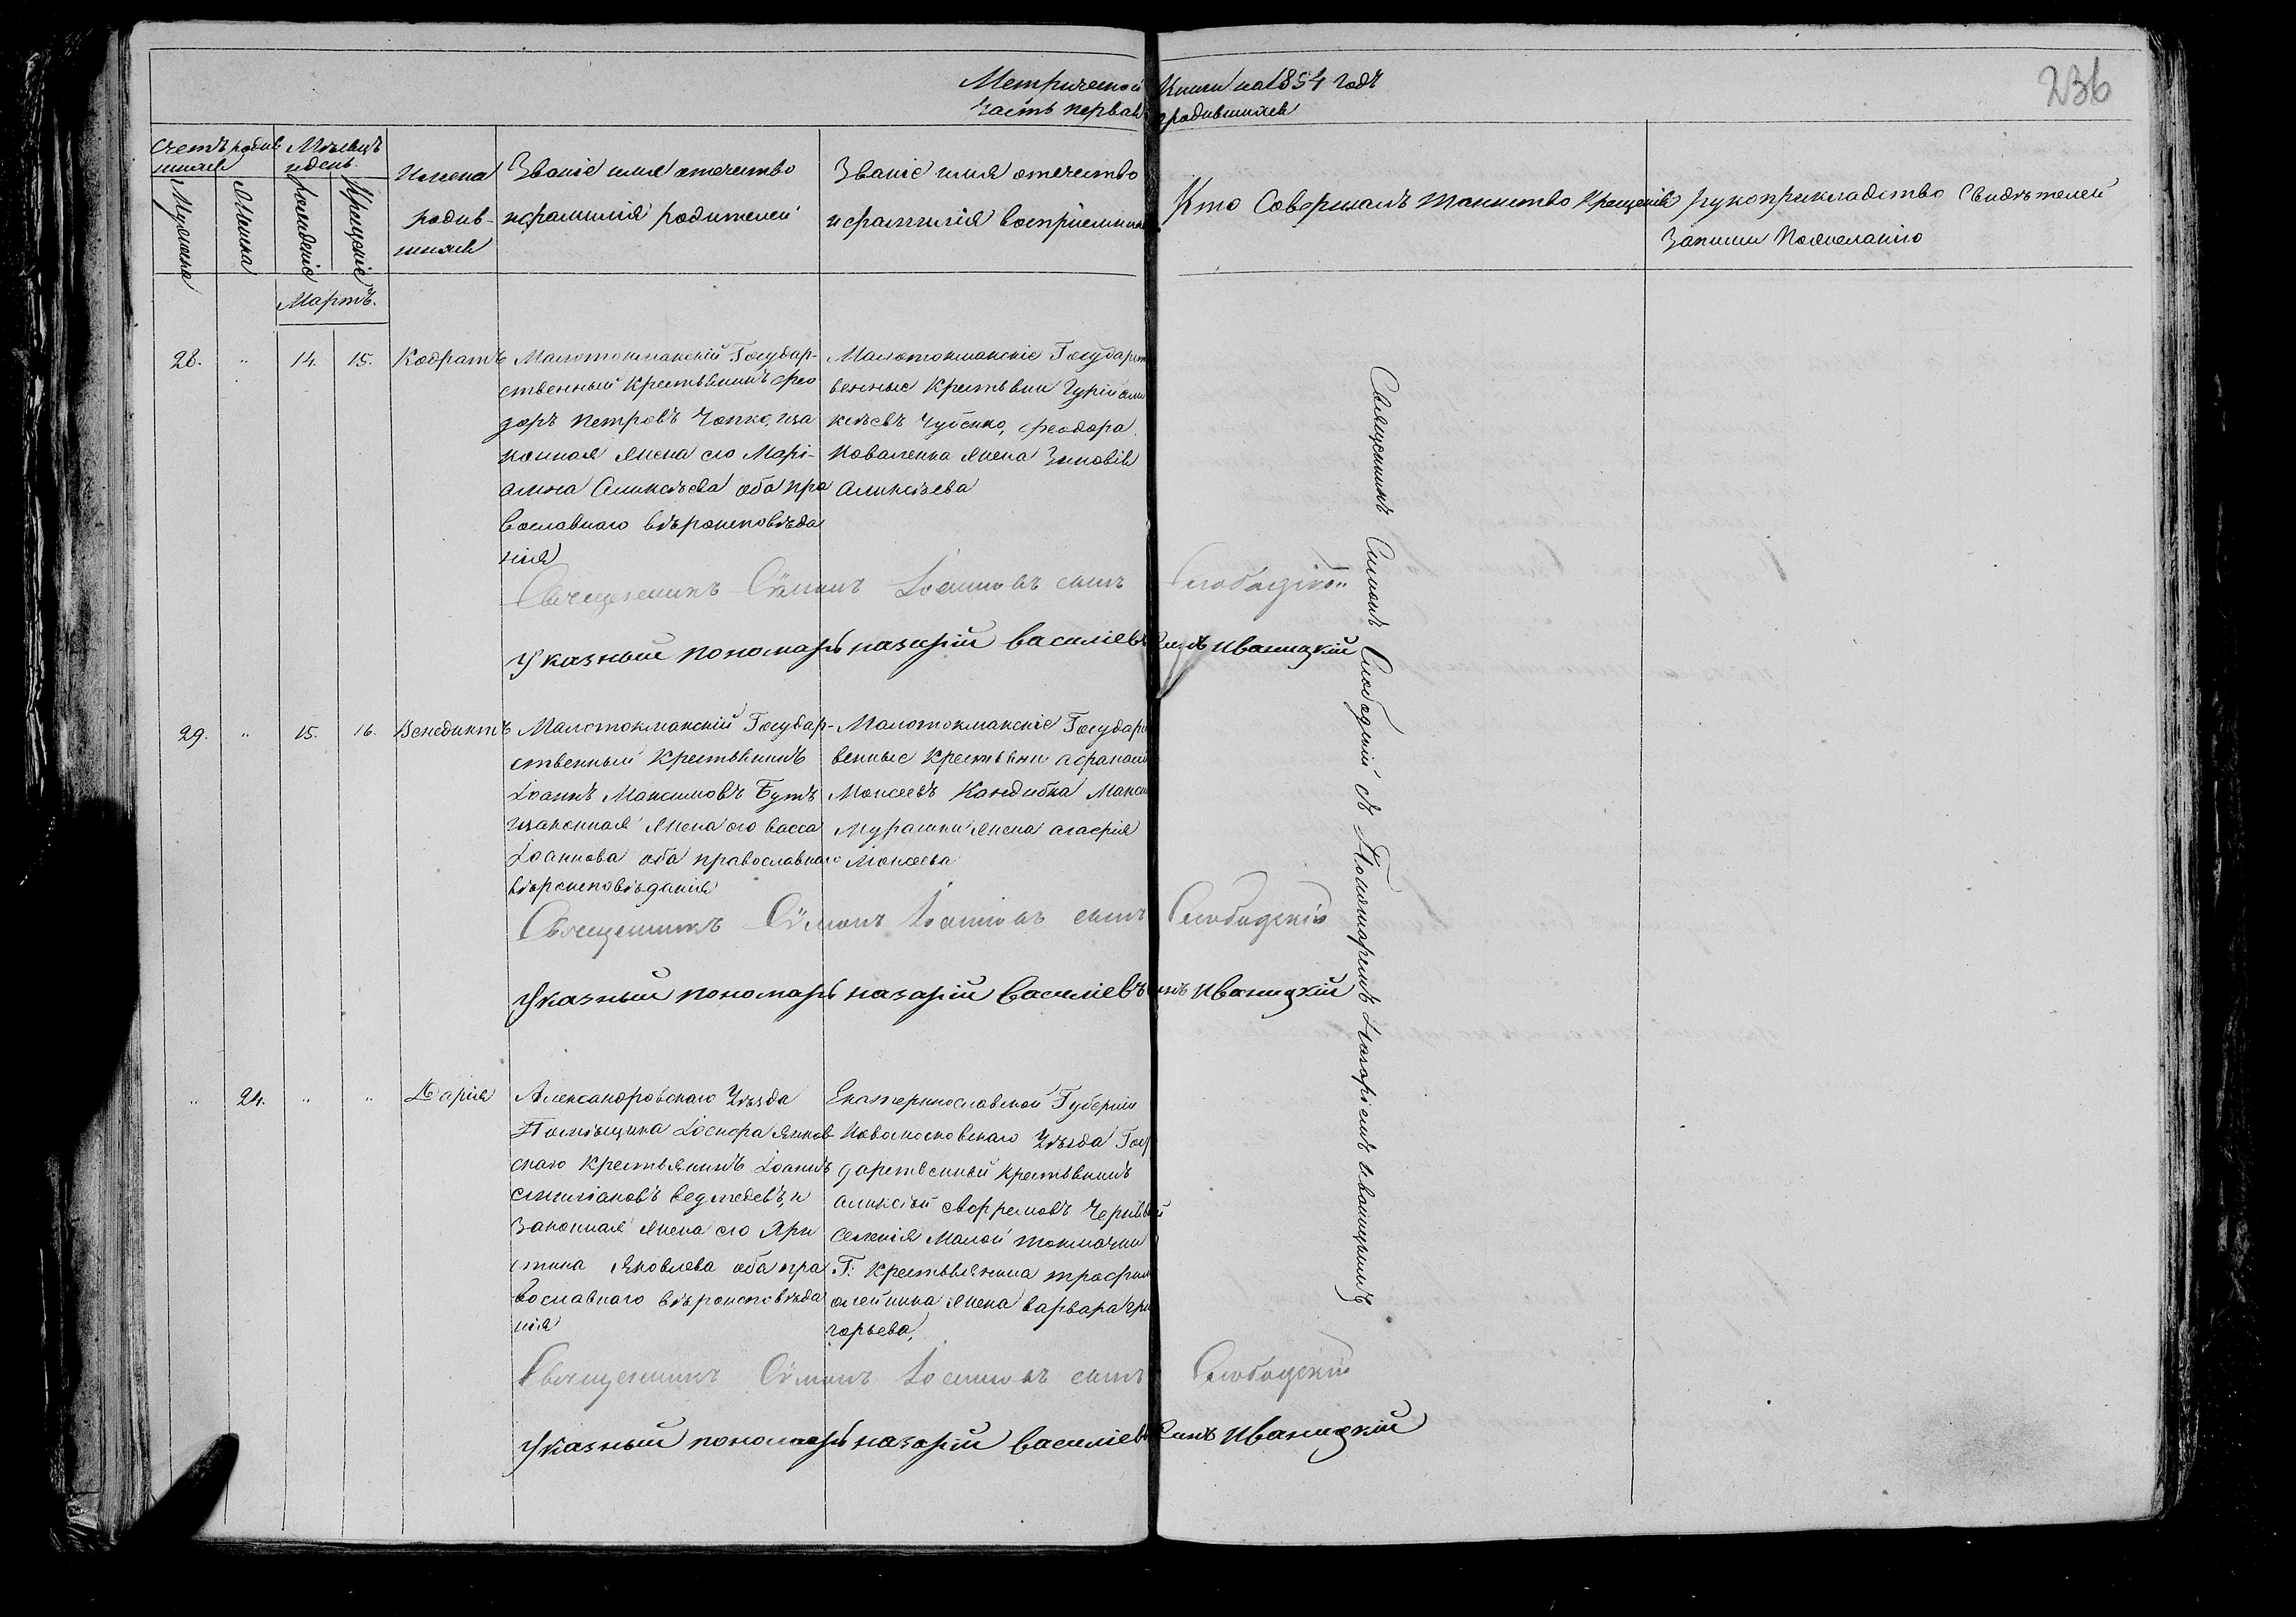 236
Метрической Книги на 1854 годъ
Часть первая о родившихся
Счетъ родив
шихся
Мужеска
Женска
Мѣсяцъ
и день.
Рожденіе
Крещеніе
Имена
родив-
шихся
Званіе имя отечество
и фамилія родителей
Званіе имя отечество
и фамилія воспріемник
Кто Совершалъ таинство крещенія
рукоприкладство Свидѣтелей
Записи По желанію
Мартъ.
28. " 14. 15. Кодратъ
Малотокмакскій Государ-
ственный Крестьянинъ Фео
доръ Петровъ Чопко, и за
конная жена его Марі-
амна Аликсѣева оба пра
вославнаго вѣроисповѣда
нія
Малотокмакскіе Государст
венные Крестьяни Гурій Али
ксѣевъ Чубенко, Феодора
Коваленка жена Зиновія
Аликсѣева
Священникъ Сѵмонъ Іоанновъ сынъ Слободскій
Указный пономарь назарій василіевъ сынъ Иваницкій
29. " 15. 16. Венедиктъ
Малотокмакскій Государ-
ственный Крестьянинъ
Іоаннъ Максимовъ Бутъ
и законная жена его васса
Іоаннова оба православнаго
вѣроисповѣданія
Малотокмакскіе Государс
венные Крестьяни афанасій
Моисеевъ Кандибка Макси
Мурашки жена агафія
Моисеева
Священникъ Сѵмонъ Іоанновъ сынъ Слободскій
Указный пономарь назарій василіевъ сынъ Иваницкій
" 24. " " Дарія
Александровскаго Уѣзда
Помѣщика Іосифа Янков
скаго Крестьянинъ Іоаннъ
емиліановъ ведмедевъ, и
законная жена его Хри
стина Яковлева оба пра
вославнаго вѣроисповѣда
нія
Екатеринославской Губерніи
Новомосковскаго Уѣзда Госу
дарственный Крестьянинъ
аликсѣй евфремовъ Червъ
селенія Малой токмачки
Г: Крестьянина трофим
олейника жена варвара гри
горьева,
Священникъ Сѵмонъ Іоанновъ сынъ Слободскій
Указный пономарь назарій василіевъ сынъ Иваницкій
Священникъ Симонъ Слободскій съ Пономаремъ Назаріемъ Иваницкимъ